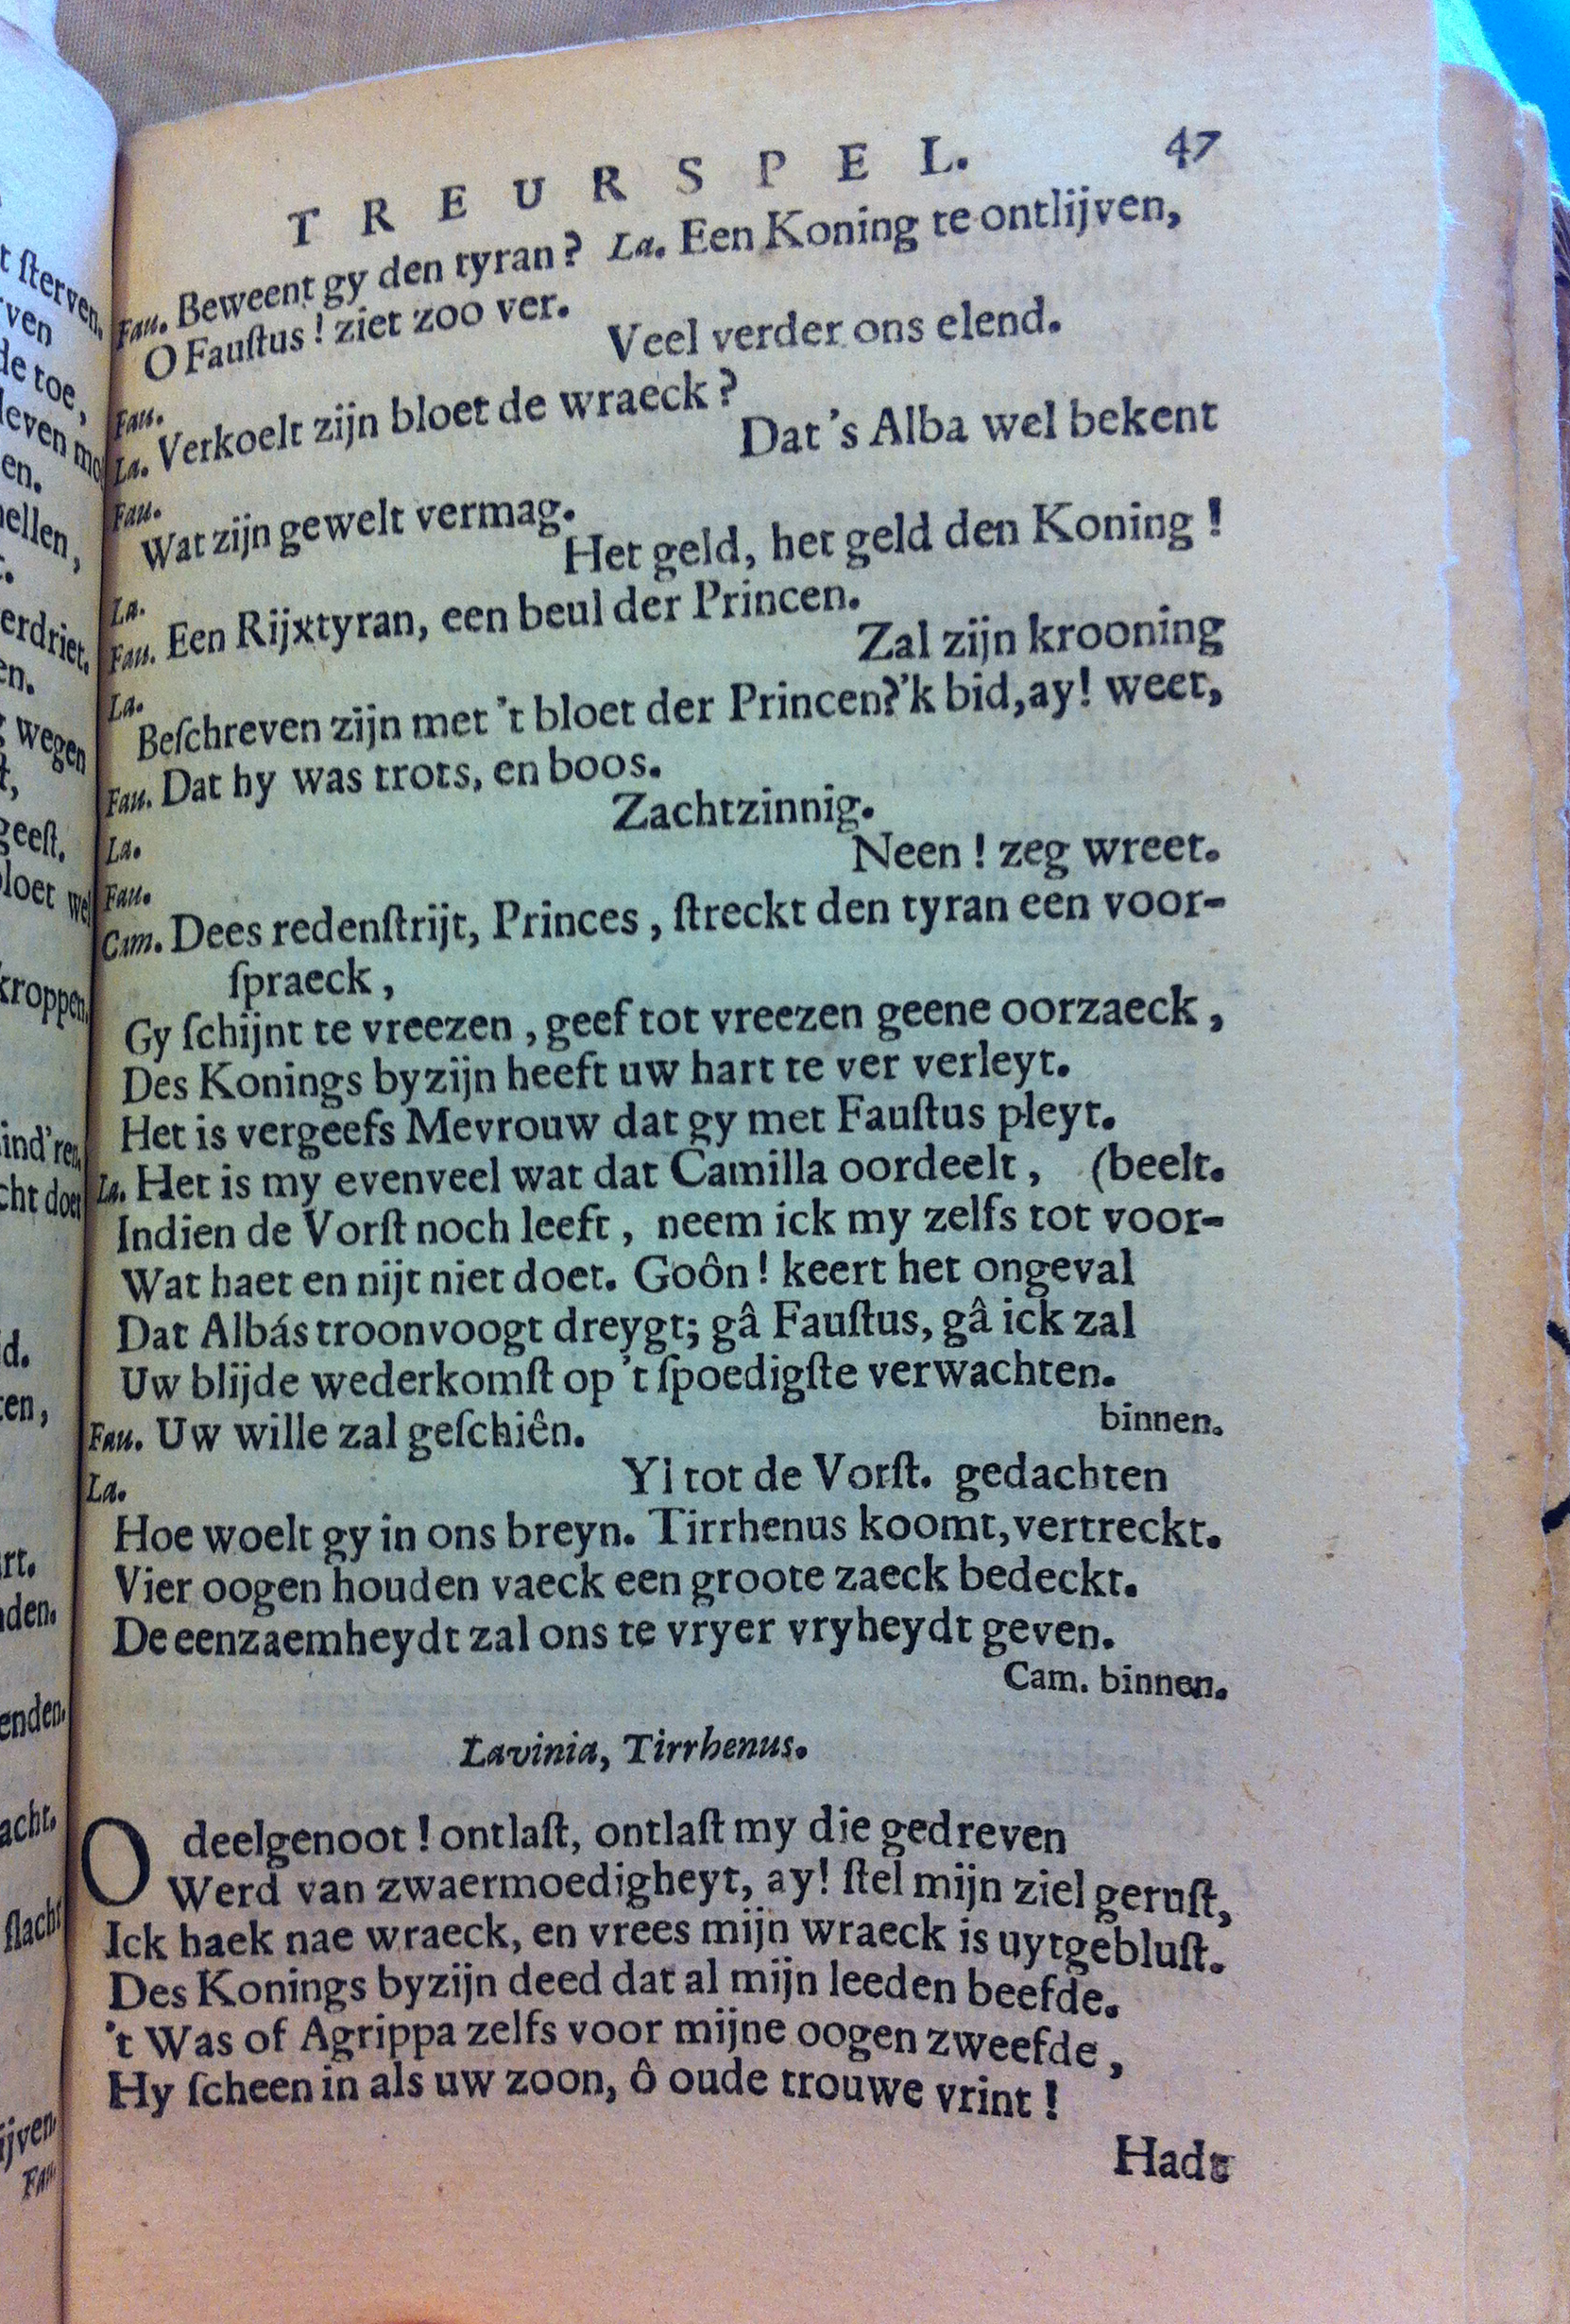 TREURSPEL. 47
Fau. Beweent gy den tyran? La. Een Koning te ontlijven,
O Fauſtus! ziet zoo ver.
Fau. Veel verder ons elend.
La. Verkoelt zijn bloet de wraeck?
Fau. Dat 's Alba wel bekent
Wat zijn gewelt vermag.
La. Het geld, het geld den Koning!
Fau. Een Rijxtyran, een beul der Princen.
La. Zal zijn krooning
Beſchreven zijn met 't bloet der Princen?'k bid, ay! weet,
Fau. Dat hy was trots, en boos.
La. Zachtzinnig.
Fau. Neen! zeg wreet.
Cam. Dees redenſtrijt, Princes, ſtreckt den tyran een voor-
ſpraeck,
Gy ſchijnt te vreezen, geef tot vreezen geene oorzaeck,
Des Konings byzijn heeft uw hart te ver verleyt.
Het is vergeefs Mevrouw dat gy met Fauſtus pleyt.
La. Het is my evenveel wat dat Camilla oordeelt, (beelt.
Indien de Vorſt noch leeft, neem ick my zelfs tot voor-
Wat haet en nijt niet doet. Goôn! keert het ongeval
Dat Albás troonvoogt dreygt; gâ Fauſtus, gâ ick zal
Uw blijde wederkomſt op 't ſpoedigſte verwachten.
Fau. Uw wille zal geſchiên. binnen.
La. Yl tot de Vorſt. gedachten
Hoe woelt gy in ons breyn. Tirrhenus koomt, vertreckt.
Vier oogen houden vaeck een groote zaeck bedeckt.
De eenzaemheydt zal ons te vryer vryheydt geven.
Cam. binnen.
Lavinia, Tirrhenus.
O deelgenoot! ontlaſt, ontlaſt my die gedreven
Werd van zwaermoedigheyt, ay! ſtel mijn ziel geruſt,
Ick haek nae wraeck, en vrees mijn wraeck is uytgebluſt.
Des Konings byzijn deed dat al mijn leeden beefde.
't Was of Agrippa zelfs voor mijne oogen zweefde,
Hy ſcheen in als uw zoon, ô oude trouwe vrint!
Hadt